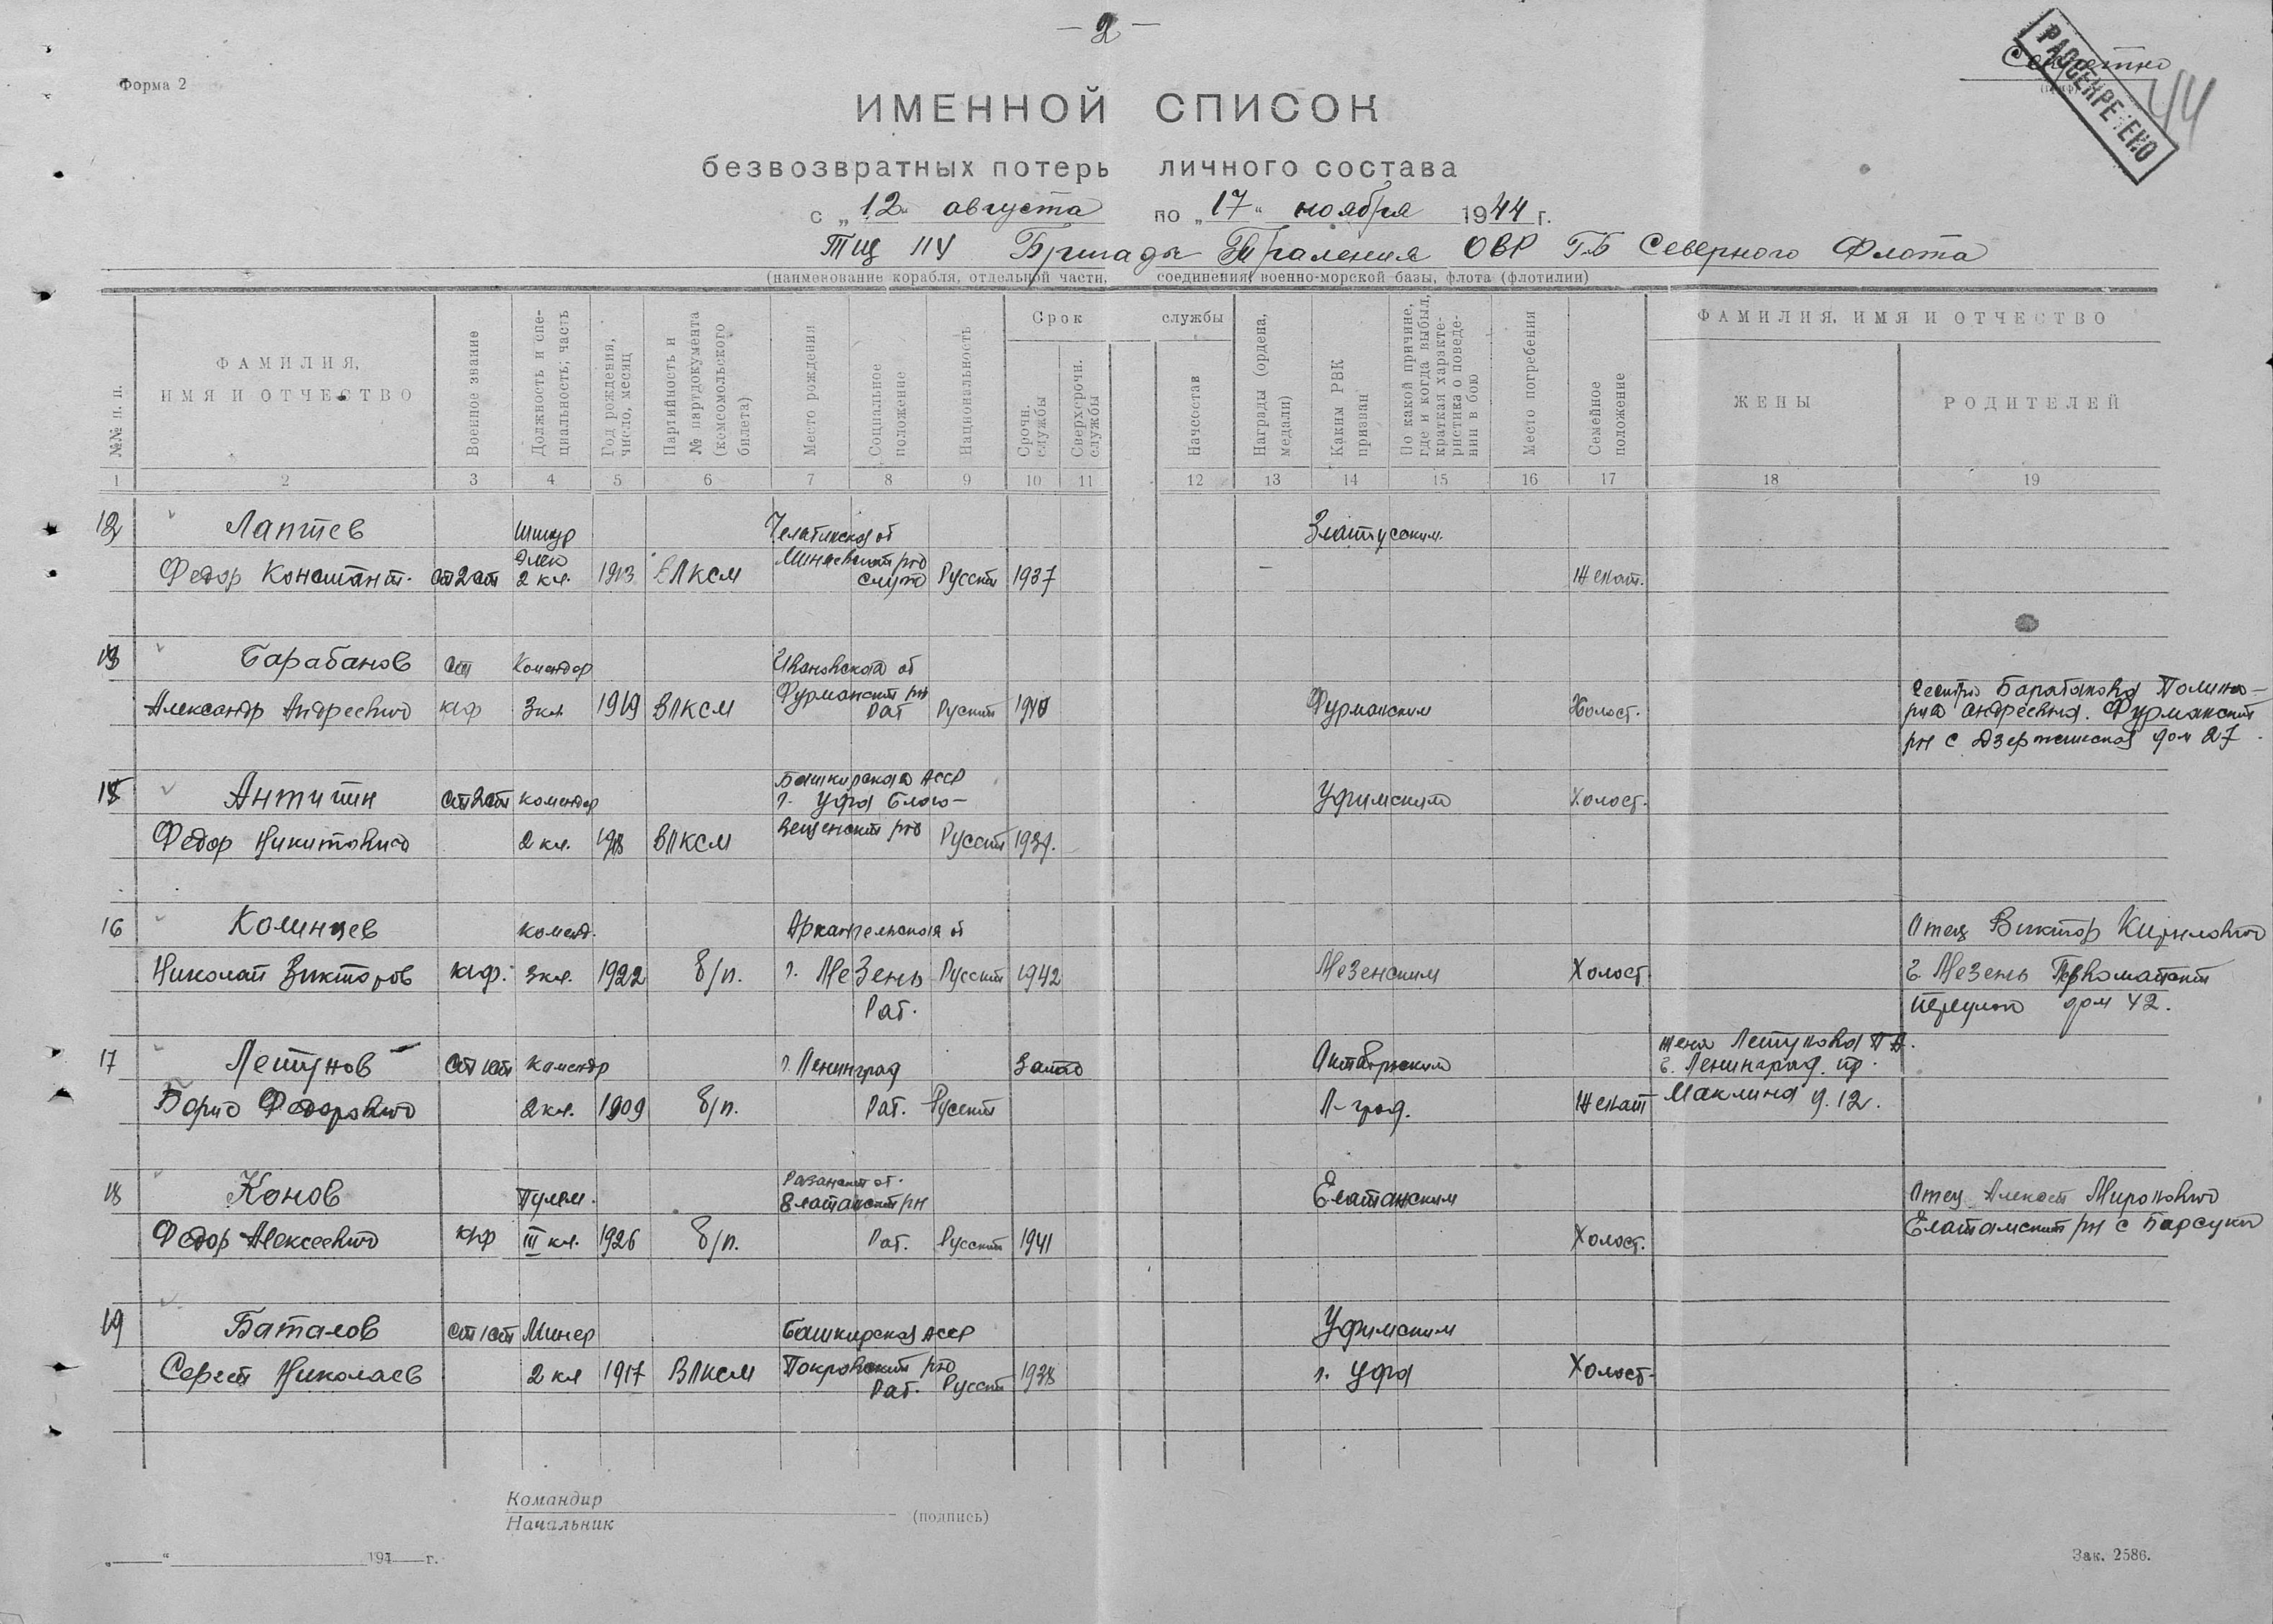 — 2 —
Форма 2
Секретно
РАССЕКРЕЧЕНО
44
ИМЕННОЙ СПИСОК
безвозвратных потерь личного состава
с „12" августа по „17" ноября 1944 г.
ТЩ 114 Бригады Траления ОВР ГБ Северного Флота
(наименование корабля, отдельной части, соединения, военно-морской базы, флота (флотилии)
№№ п. п.
ФАМИЛИЯ, ИМЯ И ОТЧЕСТВО
Военное звание
Должность и специальность, часть
Год рождения, число, месяц
Партийность и № партдокумента (комсомольского билета)
Место рождения
Социальное положение
Национальность
Срок службы
Срочн. службы
Сверхсрочн. службы
Начсостав
Награды (ордена, медали)
Каким РВК призван
По какой причине, где и когда выбыл, краткая характеристика о поведении в бою
Место погребения
Семейное положение
ФАМИЛИЯ, ИМЯ И ОТЧЕСТВО
ЖЕНЫ
РОДИТЕЛЕЙ
1 2 3 4 5 6 7 8 9 10 11 12 13 14 15 16 17 18 19
Лаптев Златоуским
Федор Констант. ст2ст 2 кл. 1913 ВЛКСМ Русский 1937 — Женат.
Барабанов ст командор Ивановская об
Александр Андреевич кф 3кл 1919 ВЛКСМ Фурмански рн Раб Руский 1940 Фурманским Холост. сестра Барабанова
андреевна. Фурмански
рн с Дзержинская дом 27
Башкирская АССР
Антипин ст2ст командор г. Уфа Благо- Уфимским Холост.
Федор Никитович 2 кл. 1918 ВЛКСМ вещенский рно Русский 1939.
16 Колинцев команд. Архангельская об Отец Виктор Кирилович
Николай Викторов кф. 3кл. 1922 б/п. г. Мезень Русский 1942 Мезенским Холост г Мезень Первомайский
Раб. переулок дом 42.
17 ст1ст командор г. Ленинград Октябрьским г. Ленинград. пр.
Борис Федорович 2 кл. 1909 б/п. Раб. Русский Л-град. Женат Маклина д. 12.
18 Конов Пулем. Елатомский рн Елатомским Отец Алексей Миронович
Федор Алексеевич кф III кл. 1926 б/п. Раб. Русский 1941 Холост. Елатомский рн с Барсуки
19 Баталов ст1ст Минер Башкирская АССР Уфимским
Сергей Николаев 2 кл 1917 ВЛКСМ Покровский рно Раб. Русский 1938 г. Уфа Холост
Командир
Начальник (подпись)
„ “ 194 г.
Зак. 2586.